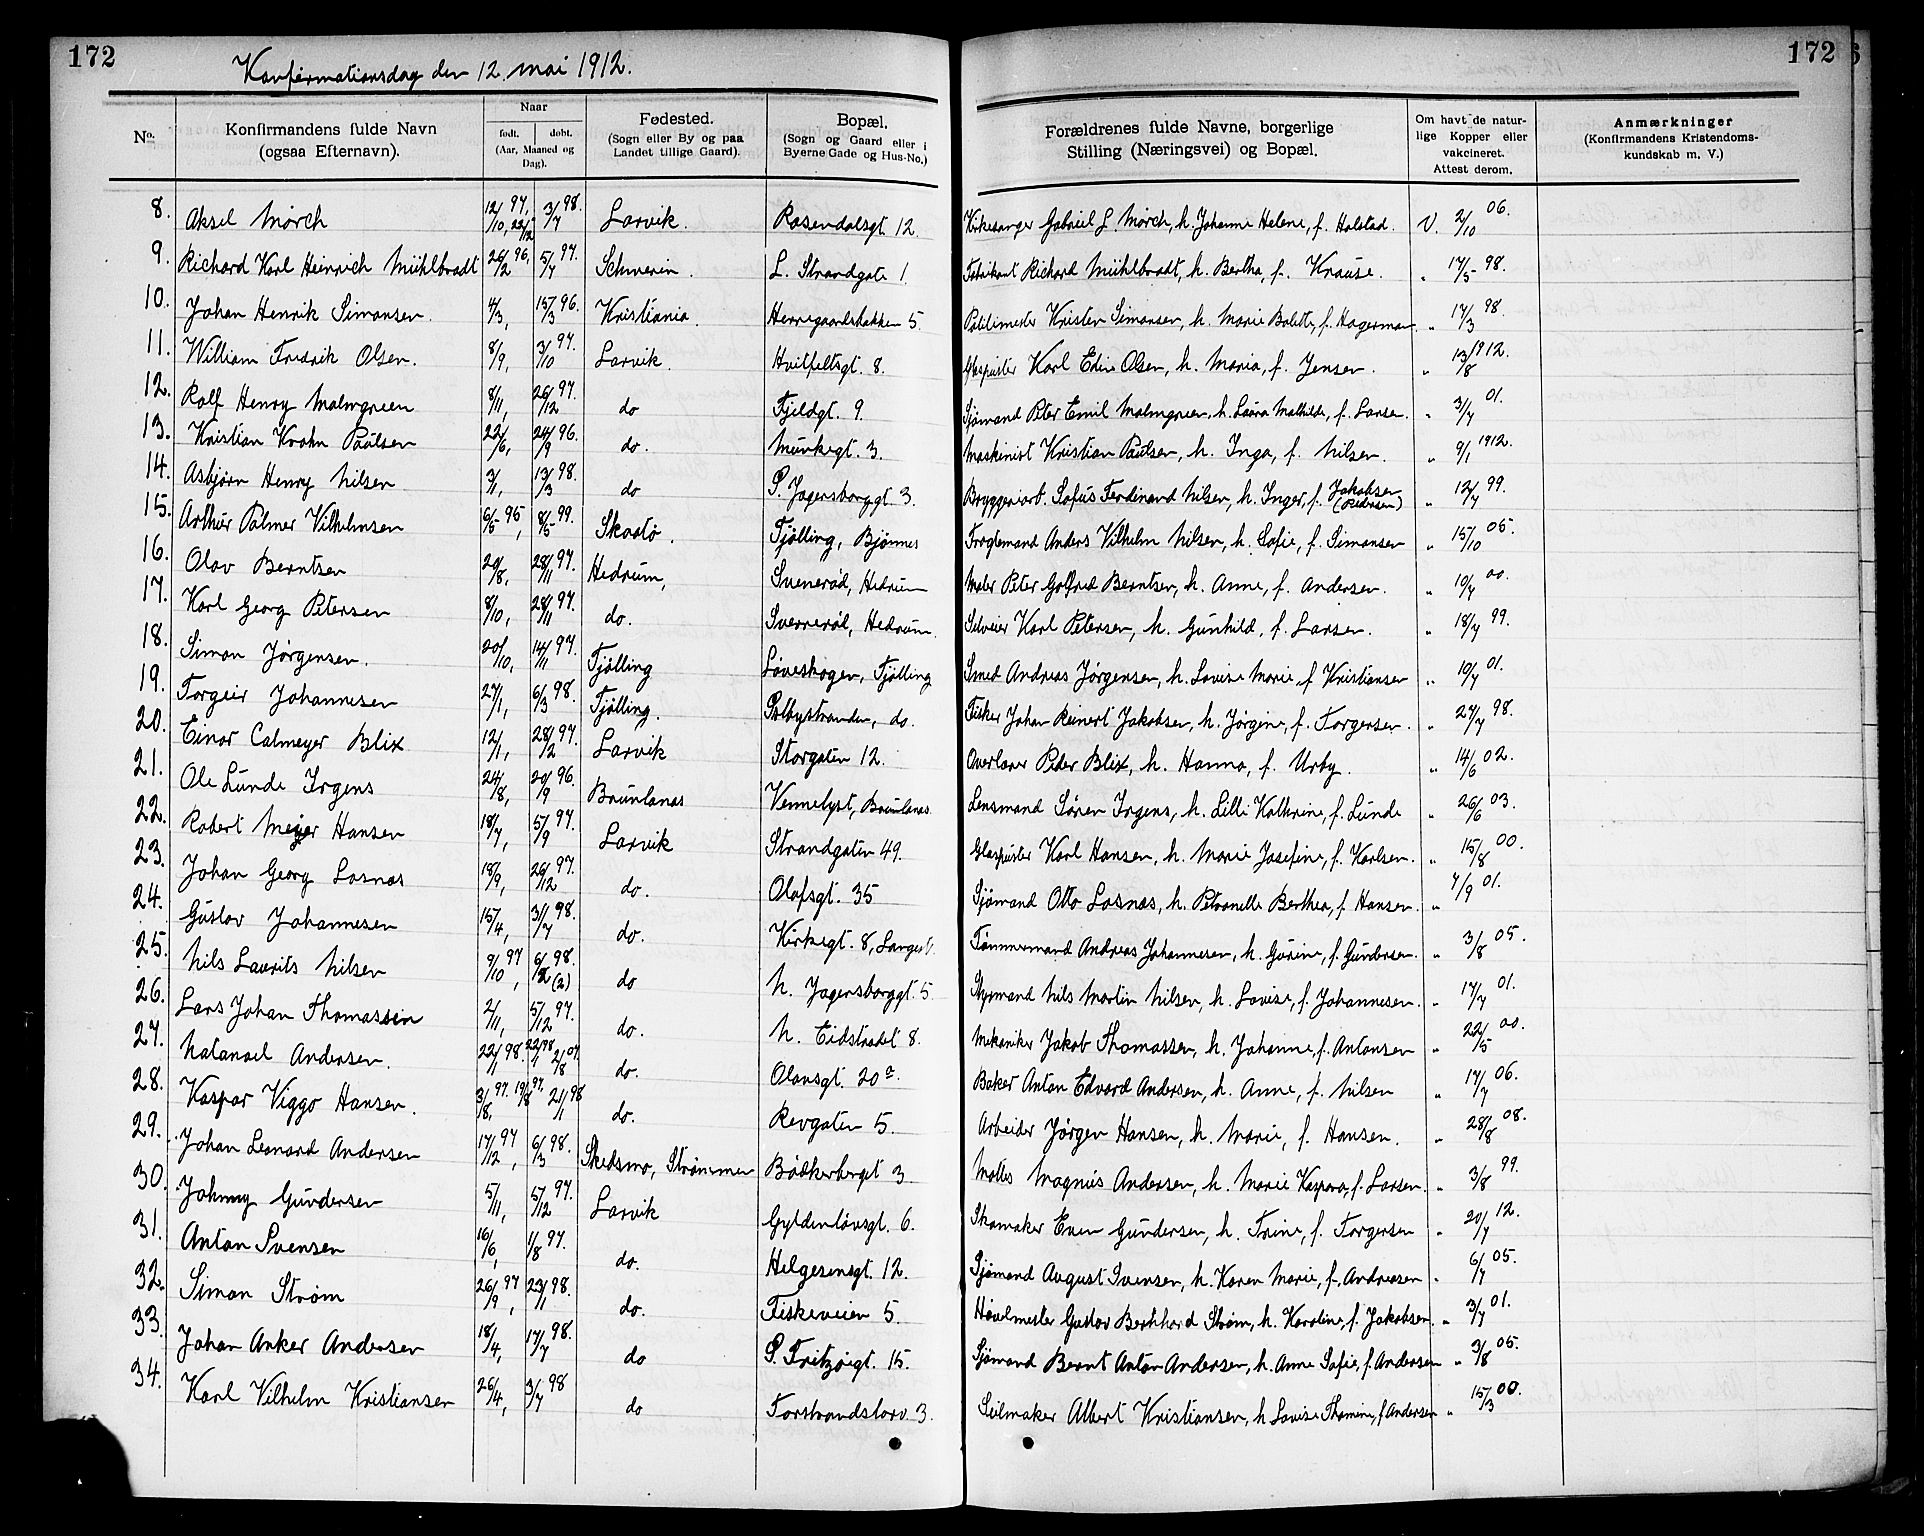 172
172
Konfirmationsdag den 12. mai 1912.
No. Konfirmandens fulde Navn (ogsaa Efternavn). Naar født. døbt. (Aar, Maaned og Dag). Fødested. (Sogn eller By og paa Landet tillige Gaard). Bopæl. (Sogn og Gaard eller i Byerne Gade og Hus-No.) Forældrenes fulde Navne, borgerlige Stilling (Næringsvei) og Bopæl. Om havt de naturlige Kopper eller vakcineret. Attest derom. Anmærkninger (Konfirmandens Kristendomskundskab m. V.)
8. Aksel Mørch 12/10 97, 22/12 3/7 98. Larvik. Rosendalsgt. 12. Kirkesanger Gabriel L. Mørch, h. Johanne Helene, f. Halstad. V. 2/10 06.
9. Richard Karl Heinrich Mühlbradt 26/2 96, 5/7 97. Schwerin. L. Strandgate 1. Fabrikant Richard Mühlbradt, h. Bertha, f. Krause. " 17/5 98.
10. Johan Henrik Simonsen. 4/3, 15/3 96. Kristiania. Herregaardsbakken 5. Politimester Kristen Simonsen, h. Marie Bolette, f. Hagerman " 17/3 98.
11. William Fredrik Olsen. 8/9, 3/10 97. Larvik. Hvitfeltsgt. 8. Glaspuster Karl Edin Olsen, h. Maria, f. Jensen. " 13/8 1912.
12. Rolf Henry Malmgreen 8/11, 26/12 97. do Fjeldgt. 9. Sjømand Peter Emil Malmgreen, h. Laura Mathilde, f. Larsen. " 3/7 01.
13. Kristian Krohn Paulsen 22/6, 24/9 96. do. Munkegt. 3. Maskinist Kristian Paulsen, h. Inga, f. Nilsen. " 9/1 1912.
14. Asbjørn Henry Nilsen 3/1, 13/3 98. do S. Jegersborggt. 3. Bryggeriarb. Sofus Ferdinand Nilsen, h. Inger, f. Jakobsen (Pedersen) " 12/7 99.
15. Arthur Palmer Vilhelmsen 6/5 95, 8/5 99. Skaatø. Tjølling, Bjønnes Fragtemand Anders Vilhelm Nilsen, h. Sofie, f. Simonsen " 15/10 05.
16. Olav Berntsen 20/8, 28/11 97. Hedrum, Sverrerød, Hedrum Maler Peter Gotfred Berntsen, h. Anne, f. Andersen. " 10/7 00.
17. Karl Georg Petersen 8/10, 28/11 97. do. Sverrerød, Hedrum. Karl Petersen, h. Gunhild, f. Larsen. " 18/7 99.
18. Simon Jørgensen. 20/10, 14/11 97. Tjølling Løveskogen, Tjølling Smed Andreas Jørgensen, h. Lovise Marie, f. Kristiansen " 10/7 01.
19. Torgeir Johannesen 27/1, 6/3 98. Tjølling. do. Fisker Johan Reinert Jakobsen, h. Jørgine, f. Torgersen. " 27/7 98.
20. Einar Calmeyer Blix 12/1, 28/2 97. Larvik Storgaten 12. Overlærer Peder Blix, h. Hanna, f. Urby. " 14/6 02.
21. Ole Lunde Irgens 24/8, 20/9 96. Brunlanes Vennelyst, Brunlanes Lensmand Søren Irgens, h. Lilli Kathrine, f. Lunde " 26/6 03.
22. Robert Meyer Hansen 18/7, 5/9 97. Larvik Strandgaten 49. Glaspuster Karl Hansen, h. Marie Josefine, f. Karlsen. " 15/8 00.
23. Johan Georg Losnes 18/9, 26/12 97. do. Olafsgt. 35 Sjømand Otto Losnes, h. Petronelle Berthea, f. Hansen. " 4/9 01.
24. Gustav Johannesen 15/4, 31/7 98. do. Kirkegt. 8, Langest. Tømmermand Andreas Johannesen, h. Gurine, f. Gundersen. " 3/8 05.
25. Nils Laurits Nilsen 9/10 97, 6/2 98. (2) do N. Jegersborggt. 5. Styrmand Nils Martin Nilsen, h. Lovise, f. Johannesen. " 17/7 01.
26. Lars Johan Thomassen 2/11, 5/12 97. do. N. Eidstredet 8. Mekaniker Jakob Thomassen, h. Johanne, f. Antonsen " 22/5 00.
27. Natanael Andersen. 22/1 98. 22/1 98 2/8 07. do. Olavsgt. 20a. Baker Anton Edvard Andersen, h. Anne, f. Nilsen " 17/7 06.
28. Kaspar Viggo Hansen. 3/8, 97. 19/8 97. 21/1 98 do. Revgaten 5. Arbeider Jørgen Hansen, h. Marie, f. Hansen. " 28/8 08.
29. Johan Leonard Andersen 17/12 97, 6/3 98. Skedsmo, Strømmen Bødkerberget 3. Magnus Andersen, h. Marie Kaspara, f. Larsen. " 3/8 99.
30. Johnny Gundersen 5/11, 5/12 97. Larvik Gyldenløvsgt. 6. Skomaker Even Gundersen, h. Trine, f. Torgersen " 20/7 12.
31. Anton Svensen 16/6, 1/8 97. do. Helgesensgt. 12. Sjømand August Svensen, h. Karen Marie, f. Andreasen " 6/7 05.
32. Simon Strøm 26/9 97, 23/1 98. do. Fiskeveien 5. Høvelmester Gustav Bernhard Strøm, h. Karoline, f. Jakobsen. " 3/7 01.
33. Johan Anker Andersen 18/4, 17/7 98. do S. Fritzøegt. 15. Sjømand Bernt Anton Andersen, h. Anne Sofie, f. Andersen " 3/8 05.
34. Karl Vilhelm Kristiansen 26/4, 3/7 98 do Torstrandstorv 3. Seilmaker Albert Kristiansen, h. Lovise Thomine, f. Andersen " 15/3 00.